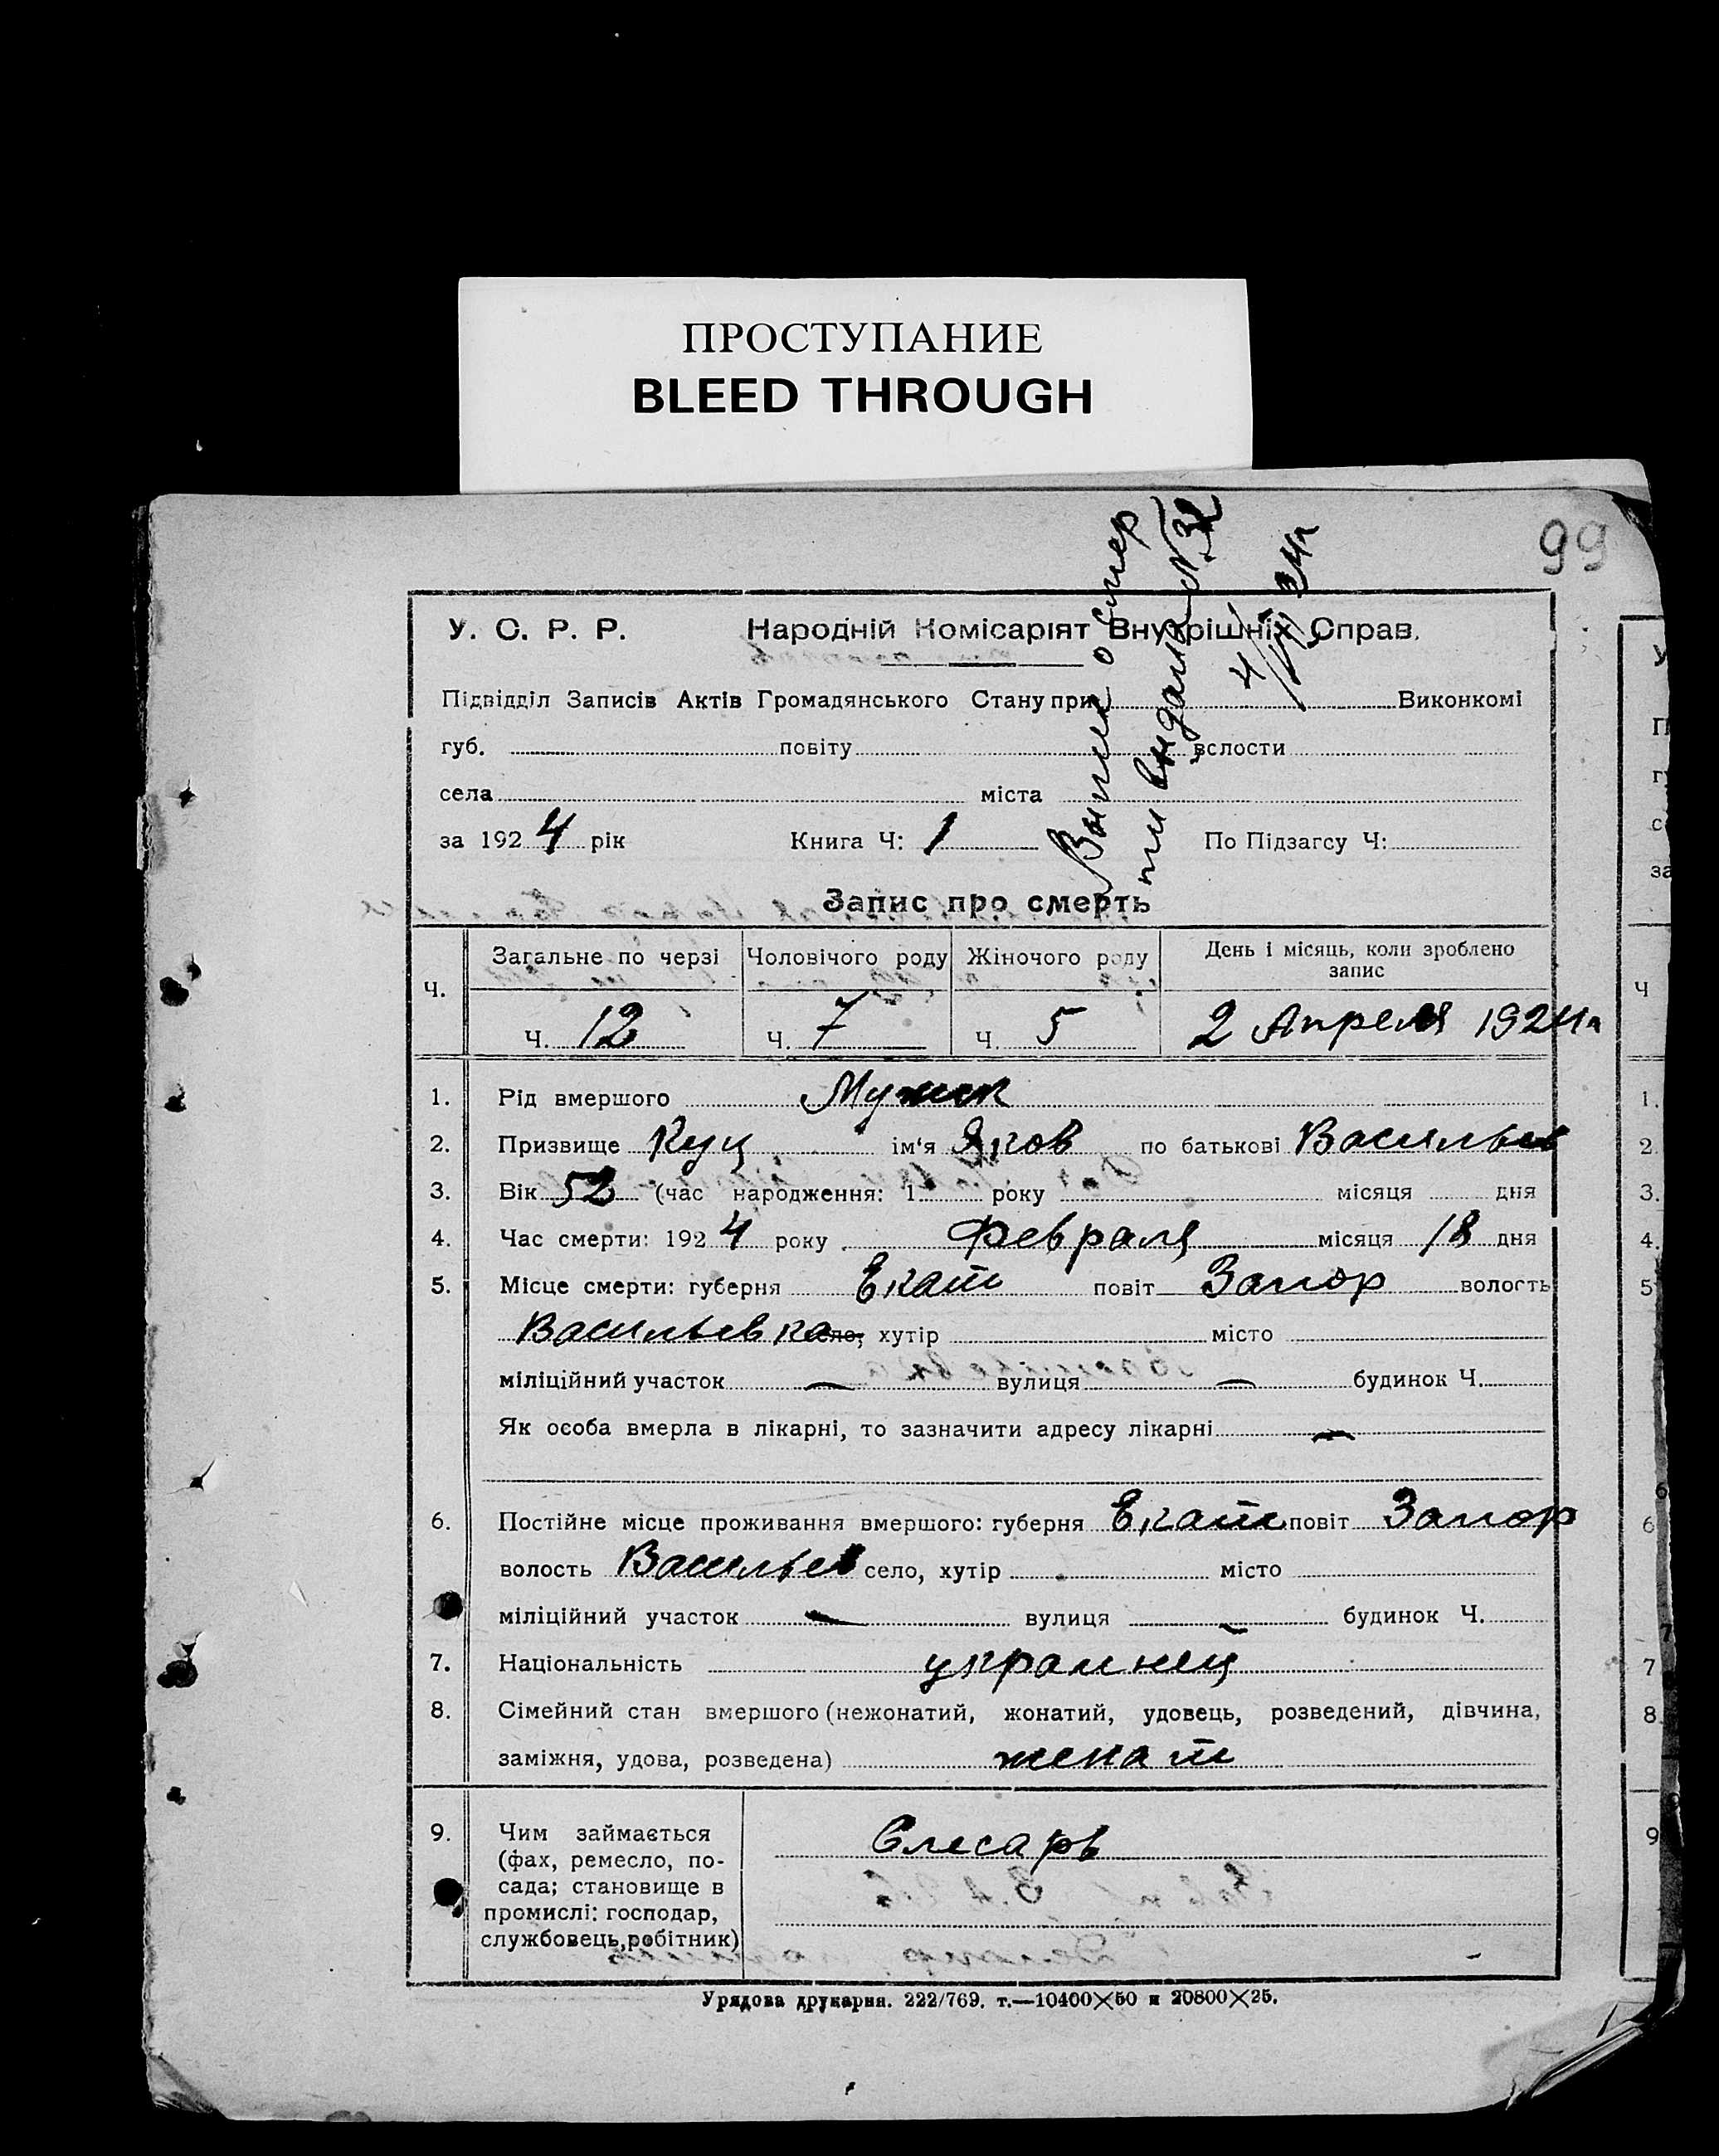 ПРОСТУПАНИЕ
BLEED THROUGH
99
Выпис о смер
ти выдана №32
4/IX 24г
У. С. Р. Р. Народній Комісаріят Внутрішніх Справ.
Підвідділ Записів Актів Громадянського Стану при Виконкомі
губ. повіту волости
села міста
за 1924 рік Книга Ч: 1 По Підзагсу Ч:
Запис про смерть
Ч. Загальне по черзі Чоловічого роду Жіночого роду День і місяць, коли зроблено
запис
Ч. 12 Ч. 7 Ч. 5 2 Апреля 1924г
1. Рід вмершого Мужск
2. Призвище Куц ім‘я Яков по батькові Васильев
3. Вік 52 (час народження: 1 року місяця дня
4. Час смерти: 1924 року Февраля місяця 18 дня
5. Місце смерти: губерня Екат повіт Запор волость
Васильевка село, хутір місто
міліційний участок — вулиця — будинок Ч.
Як особа вмерла в лікарні, то зазначити адресу лікарні —
6. Постійне місце проживання вмершого: губерня Екат повіт Запор
волость Васильев село, хутір місто
міліційний участок — вулиця — будинок Ч.
7. Національність украинец
8. Сімейний стан вмершого (нежонатий, жонатий, удовець, розведений, дівчина,
заміжня, удова, розведена) женат
9. Чим займається Слесарь
(фах, ремесло, по-
сада; становище в
промислі: господар,
службовець, робітник)
Урядова друкарня. 222/769. т.—10400×50 и 20800×25.